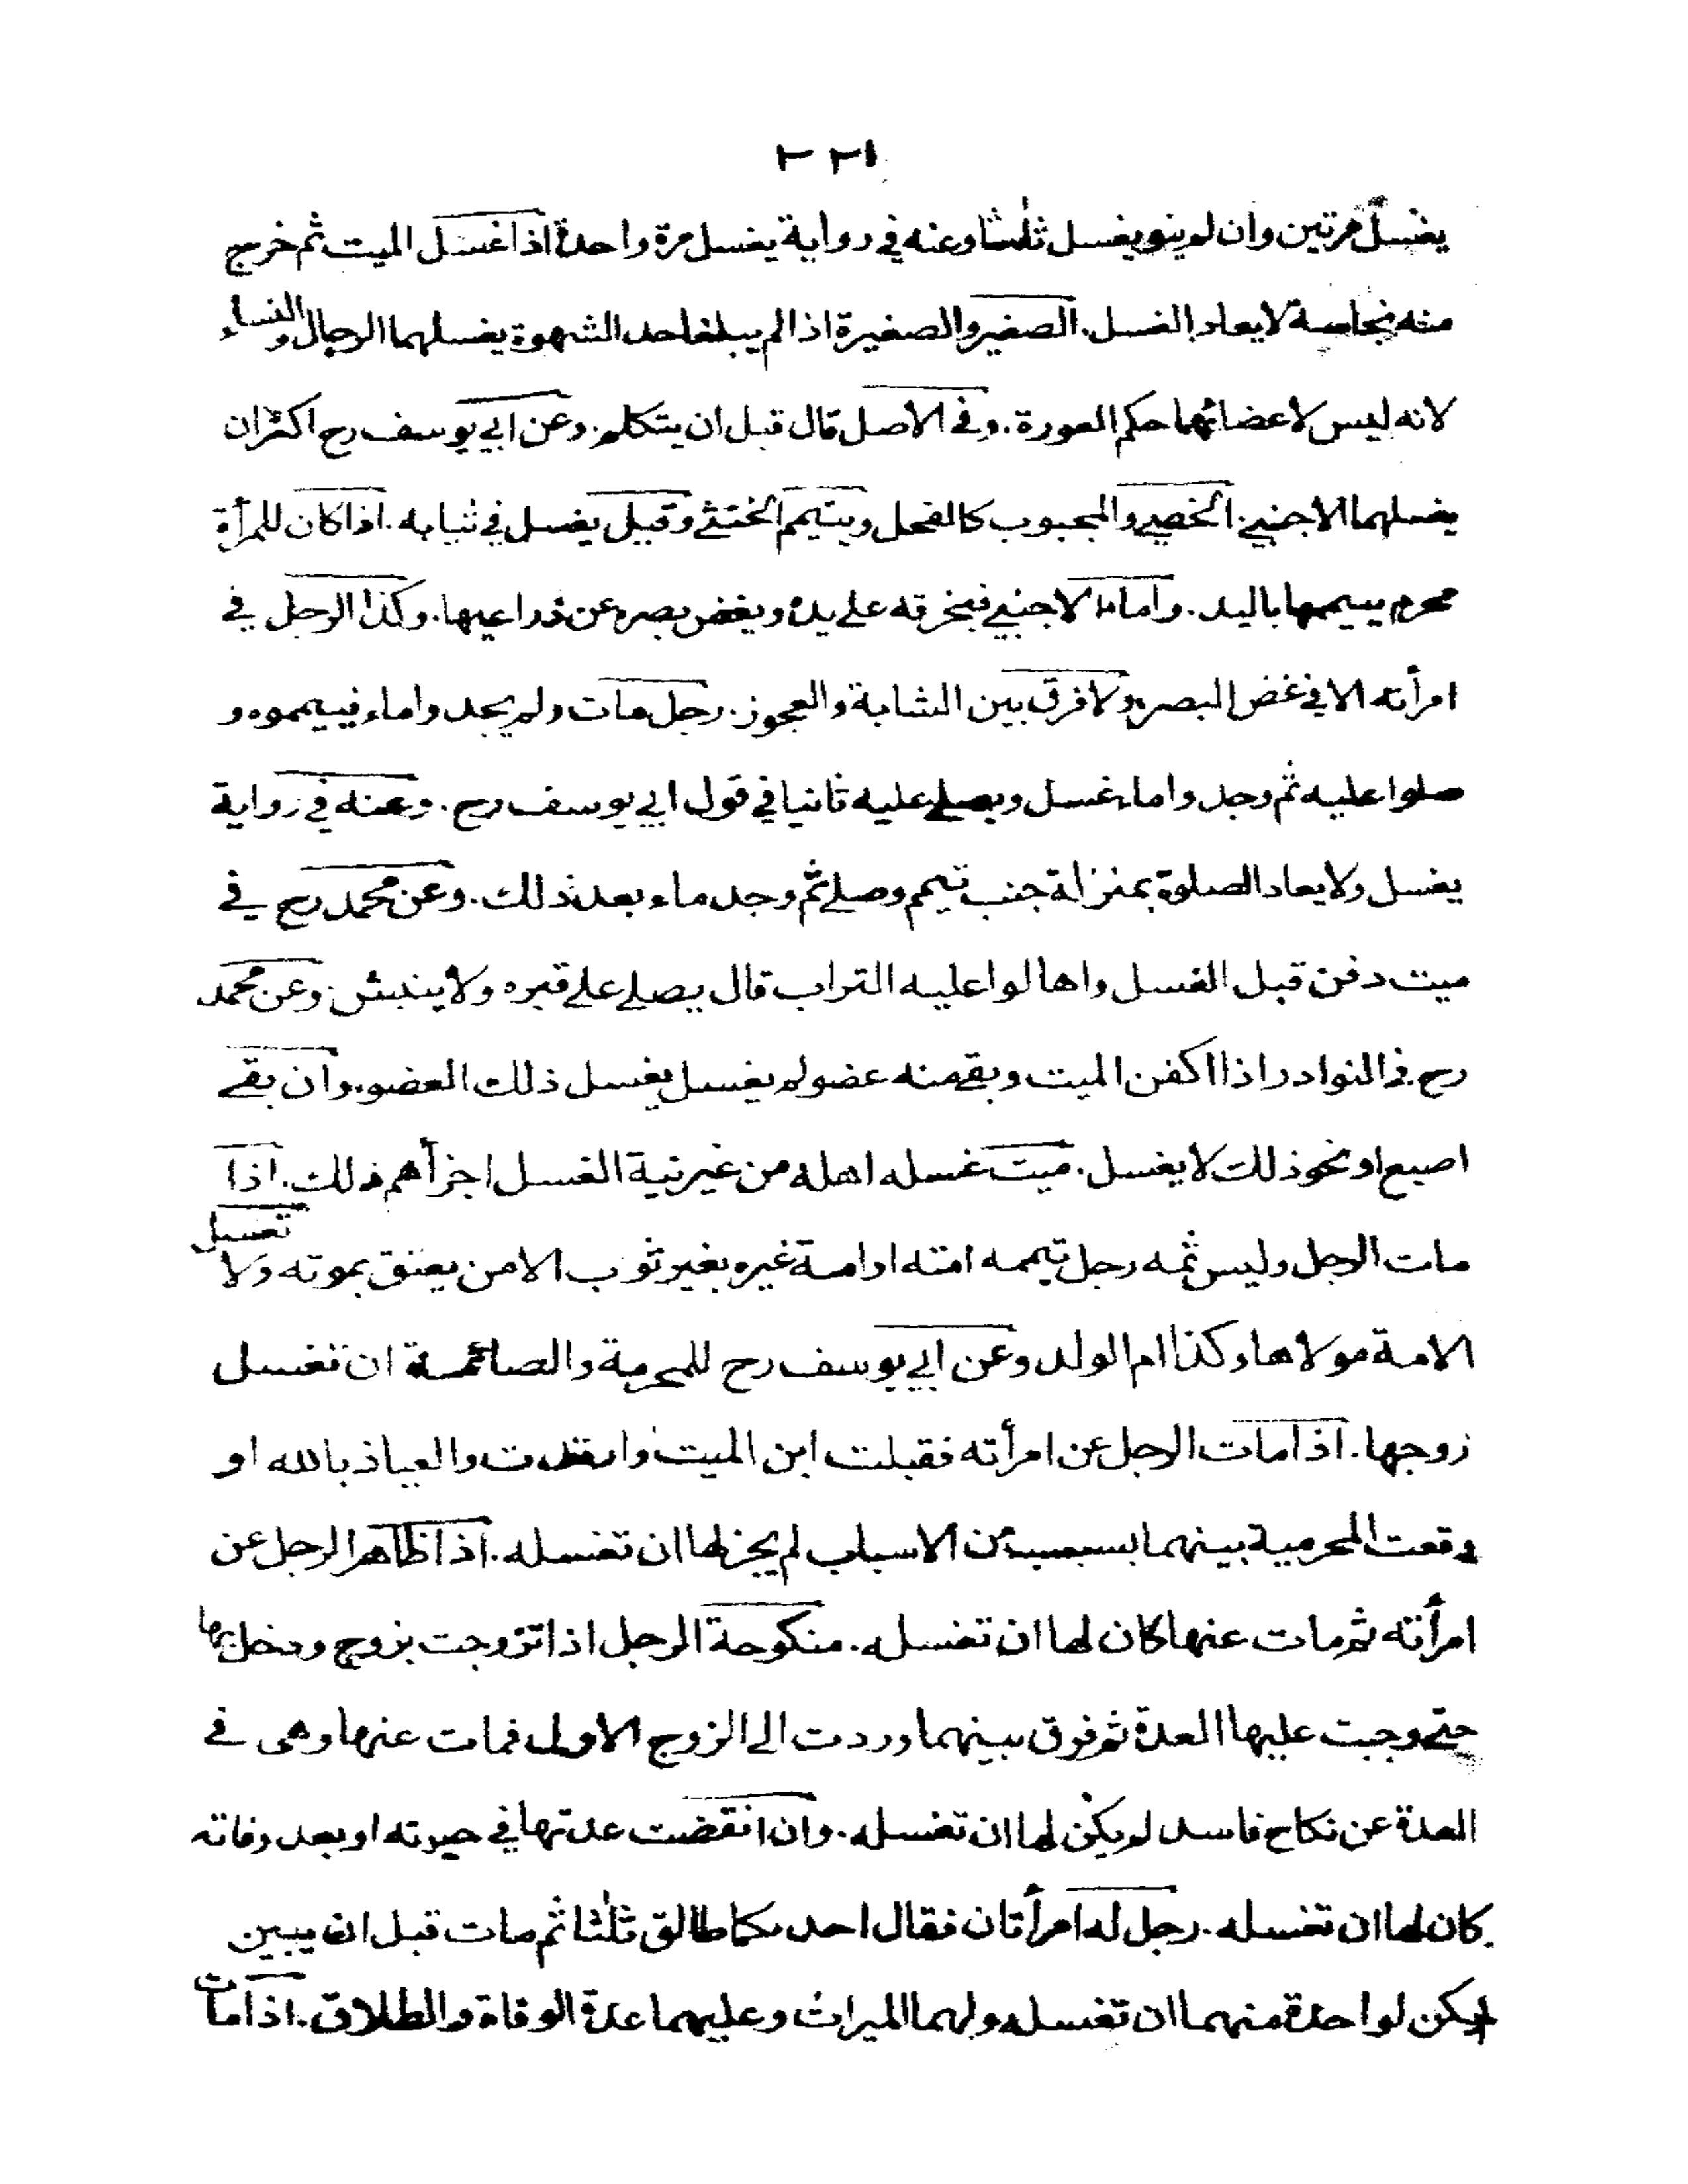 ٢٢١
يغسل مرتين وان لم ينو يغسل ثلثا وعنه في رواية يغسل مرة واحدة اذا غسل الميت ثم خرج
منه نجاسة لا يعاد الغسل. الصغير والصغيرة اذا لم يبلغا حد الشهوة يغسلهما الرجال والنساء
لانه ليس لاعضائهما حكم العورة. وفي الاصل قال قبل ان يتكلم. وعن ابي يوسف رح اكره ان
يغسلهما الاجنبي. الخصي والمجبوب كالفحل ويتيمم الخنثى وقيل يغسل في ثيابه. اذا كان للمرأة
محرم ييممها باليد. واما الاجنبي فبخرقه على يده ويغض بصره عن ذراعيها. وكذا الرجل في
امرأته الا في غض البصر ولا فرق بين الشابة والعجوز. رجل مات ولم يجدوا ماء فييمموه و
صلوا عليه ثم وجدوا ماء غسل ويصلى عليه ثانيا في قول ابي يوسف رح. وعنه في رواية
يغسل ولا يعاد الصلوة بمنزلة جنب تيمم وصلى ثم وجد ماء بعد ذلك. وعن محمد رح في
ميت دفن قبل الغسل واهالوا عليه التراب قال يصلى على قبره ولا ينبش. وعن محمد
رح في النوادر اذا اكفن الميت وبقى منه عضو لم يغسل يغسل ذلك العضو. وان بقى
اصبع او نحو ذلك لا يغسل. ميت غسله اهله من غير نية الغسل اجزأهم ذلك. اذا
مات الرجل وليس ثمه رجل تيممه امته او امة غيره بغير ثوب الا من يعتق بموته ولا تغسل
الامة مولاها وكذا ام الولد وعن ابي يوسف رح للمحرمة والصائمة ان تغسل
زوجها. اذا مات الرجل عن امرأته فقبلت ابن الميت وارتدت والعياذ بالله او
وقعت المحرمية بينهما بسبب من الاسباب لم يجز لها ان تغسله. اذا ظاهر الرجل عن
امرأته ثم مات عنها كان لها ان تغسله. منكوحة الرجل اذا تزوجت بزوج ودخل بها
حتى وجبت عليها العدة ثم فرق بينهما وردت الى الزوج الاول فمات عنها وهى في
العدة عن نكاح فاسد لم يكن لها ان تغسله. وان انقضت عدتها في حيوته او بعد وفاته
كان لها ان تغسله. رجل له امرأتان فقال احدىكما طالق ثلثا ثم مات قبل ان يبين
لم يكن لواحدة منهما ان تغسله ولهما الميراث وعليهما عدة الوفاة والطلاق. اذا مات